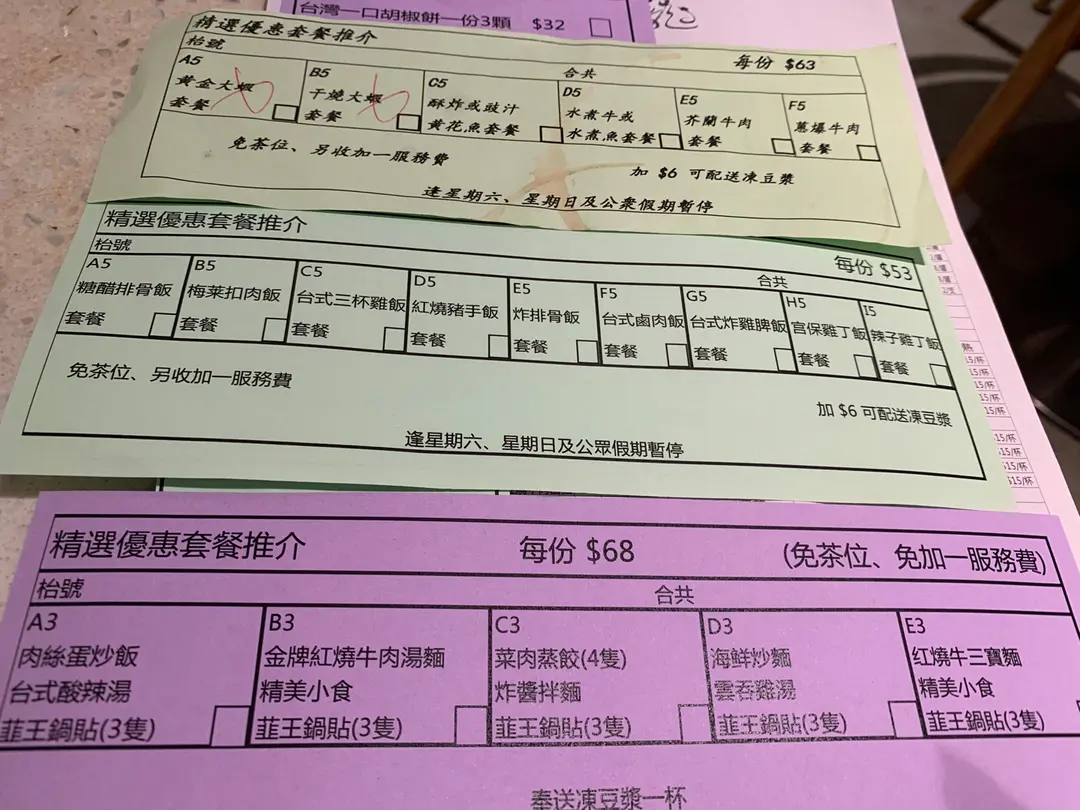 台灣一口胡椒餅一份3顆 $32
精選優惠套餐推介 每份 $63
枱號 合共
A5 B5 C5 D5 E5 F5
黃金大蝦 干燒大蝦 酥炸或豉汁 水煮牛或 芥蘭牛肉 蔥爆牛肉
套餐 套餐 黃花魚套餐 水煮魚套餐 套餐 套餐
免茶位、另收加一服務費 加 $6 可配送凍豆漿
逢星期六、星期日及公衆假期暫停
精選優惠套餐推介 每份 $53
枱號 合共
A5 B5 C5 D5 E5 F5 G5 H5 I5
糖醋排骨飯 梅菜扣肉飯 台式三杯雞飯 紅燒豬手飯 炸排骨飯 台式鹵肉飯 台式炸雞脾飯 宮保雞丁飯 辣子雞丁飯
套餐 套餐 套餐 套餐 套餐 套餐 套餐 套餐 套餐
免茶位、另收加一服務費 加 $6 可配送凍豆漿
逢星期六、星期日及公眾假期暫停
精選優惠套餐推介 每份 $68 (免茶位、免加一服務費)
枱號 合共
A3 B3 C3 D3 E3
肉絲蛋炒飯 金牌紅燒牛肉湯麵 菜肉蒸餃(4隻) 海鮮炒麵 紅燒牛三寶麵
台式酸辣湯 精美小食 炸醬拌麵 雲吞雞湯 精美小食
韮王鍋貼(3隻) 韮王鍋貼(3隻) 韮王鍋貼(3隻) 韮王鍋貼(3隻) 韮王鍋貼(3隻)
奉送凍豆漿一杯